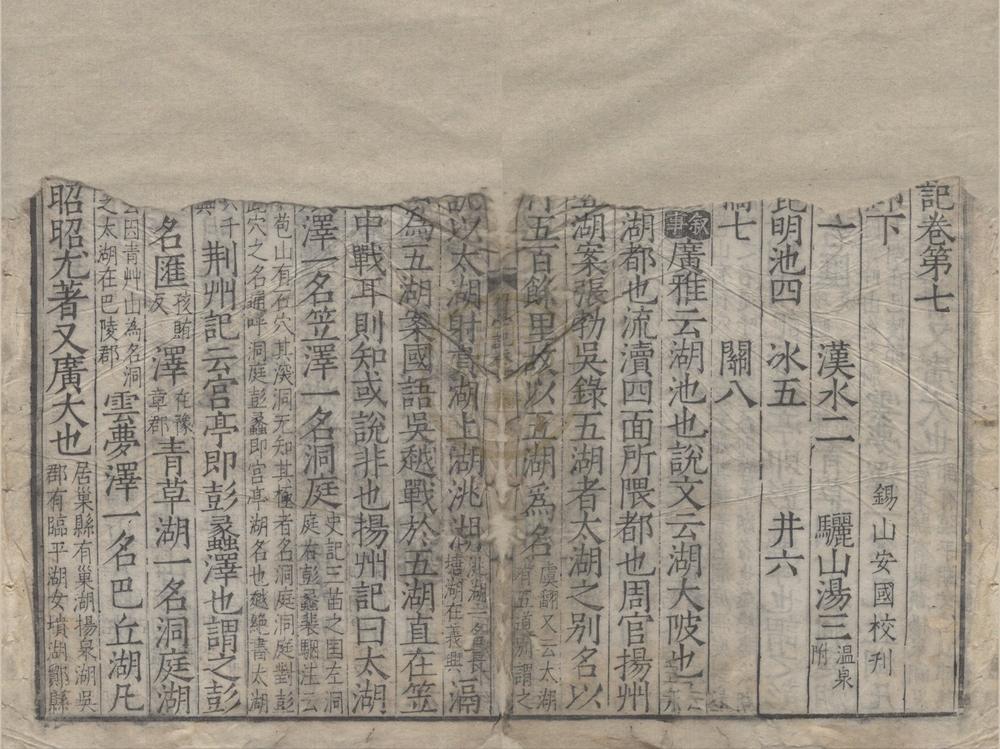 記卷第七
下 錫山安國校刊
一 漢水二 驪山湯三 溫泉附
昆明池四 冰五 井六
七 關八
敘事 廣雅云湖池也說文云湖大陂也
湖都也流瀆四面所隈都也周官揚州
湖案張勃吳錄五湖者太湖之別名以
五百餘里故以五湖為名 虞翻又云太湖有五道別謂之
以太湖射貴湖上湖洮湖 滆
為五湖案國語吳越戰於五湖直在笠
中戰耳則知或說非也揚州記曰太湖
澤一名笠澤一名洞庭 史記三苗之國左洞庭右彭蠡裴駰注云
苞山有石穴其深洞无知其極者名洞庭洞庭對彭
穴之名通呼洞庭彭蠡即宮亭湖名也越絕書太湖
千 荆州記云宮亭即彭蠡澤也謂之彭
名匯 孩賄反 澤 在豫章郡 青草湖一名洞庭湖
因青草山為名洞
之太湖在巴陵郡 雲夢澤一名巴丘湖凡
昭昭尤著又廣大也 居巢縣有巢湖揚泉湖吳
郡有臨平湖女墳湖鄒縣